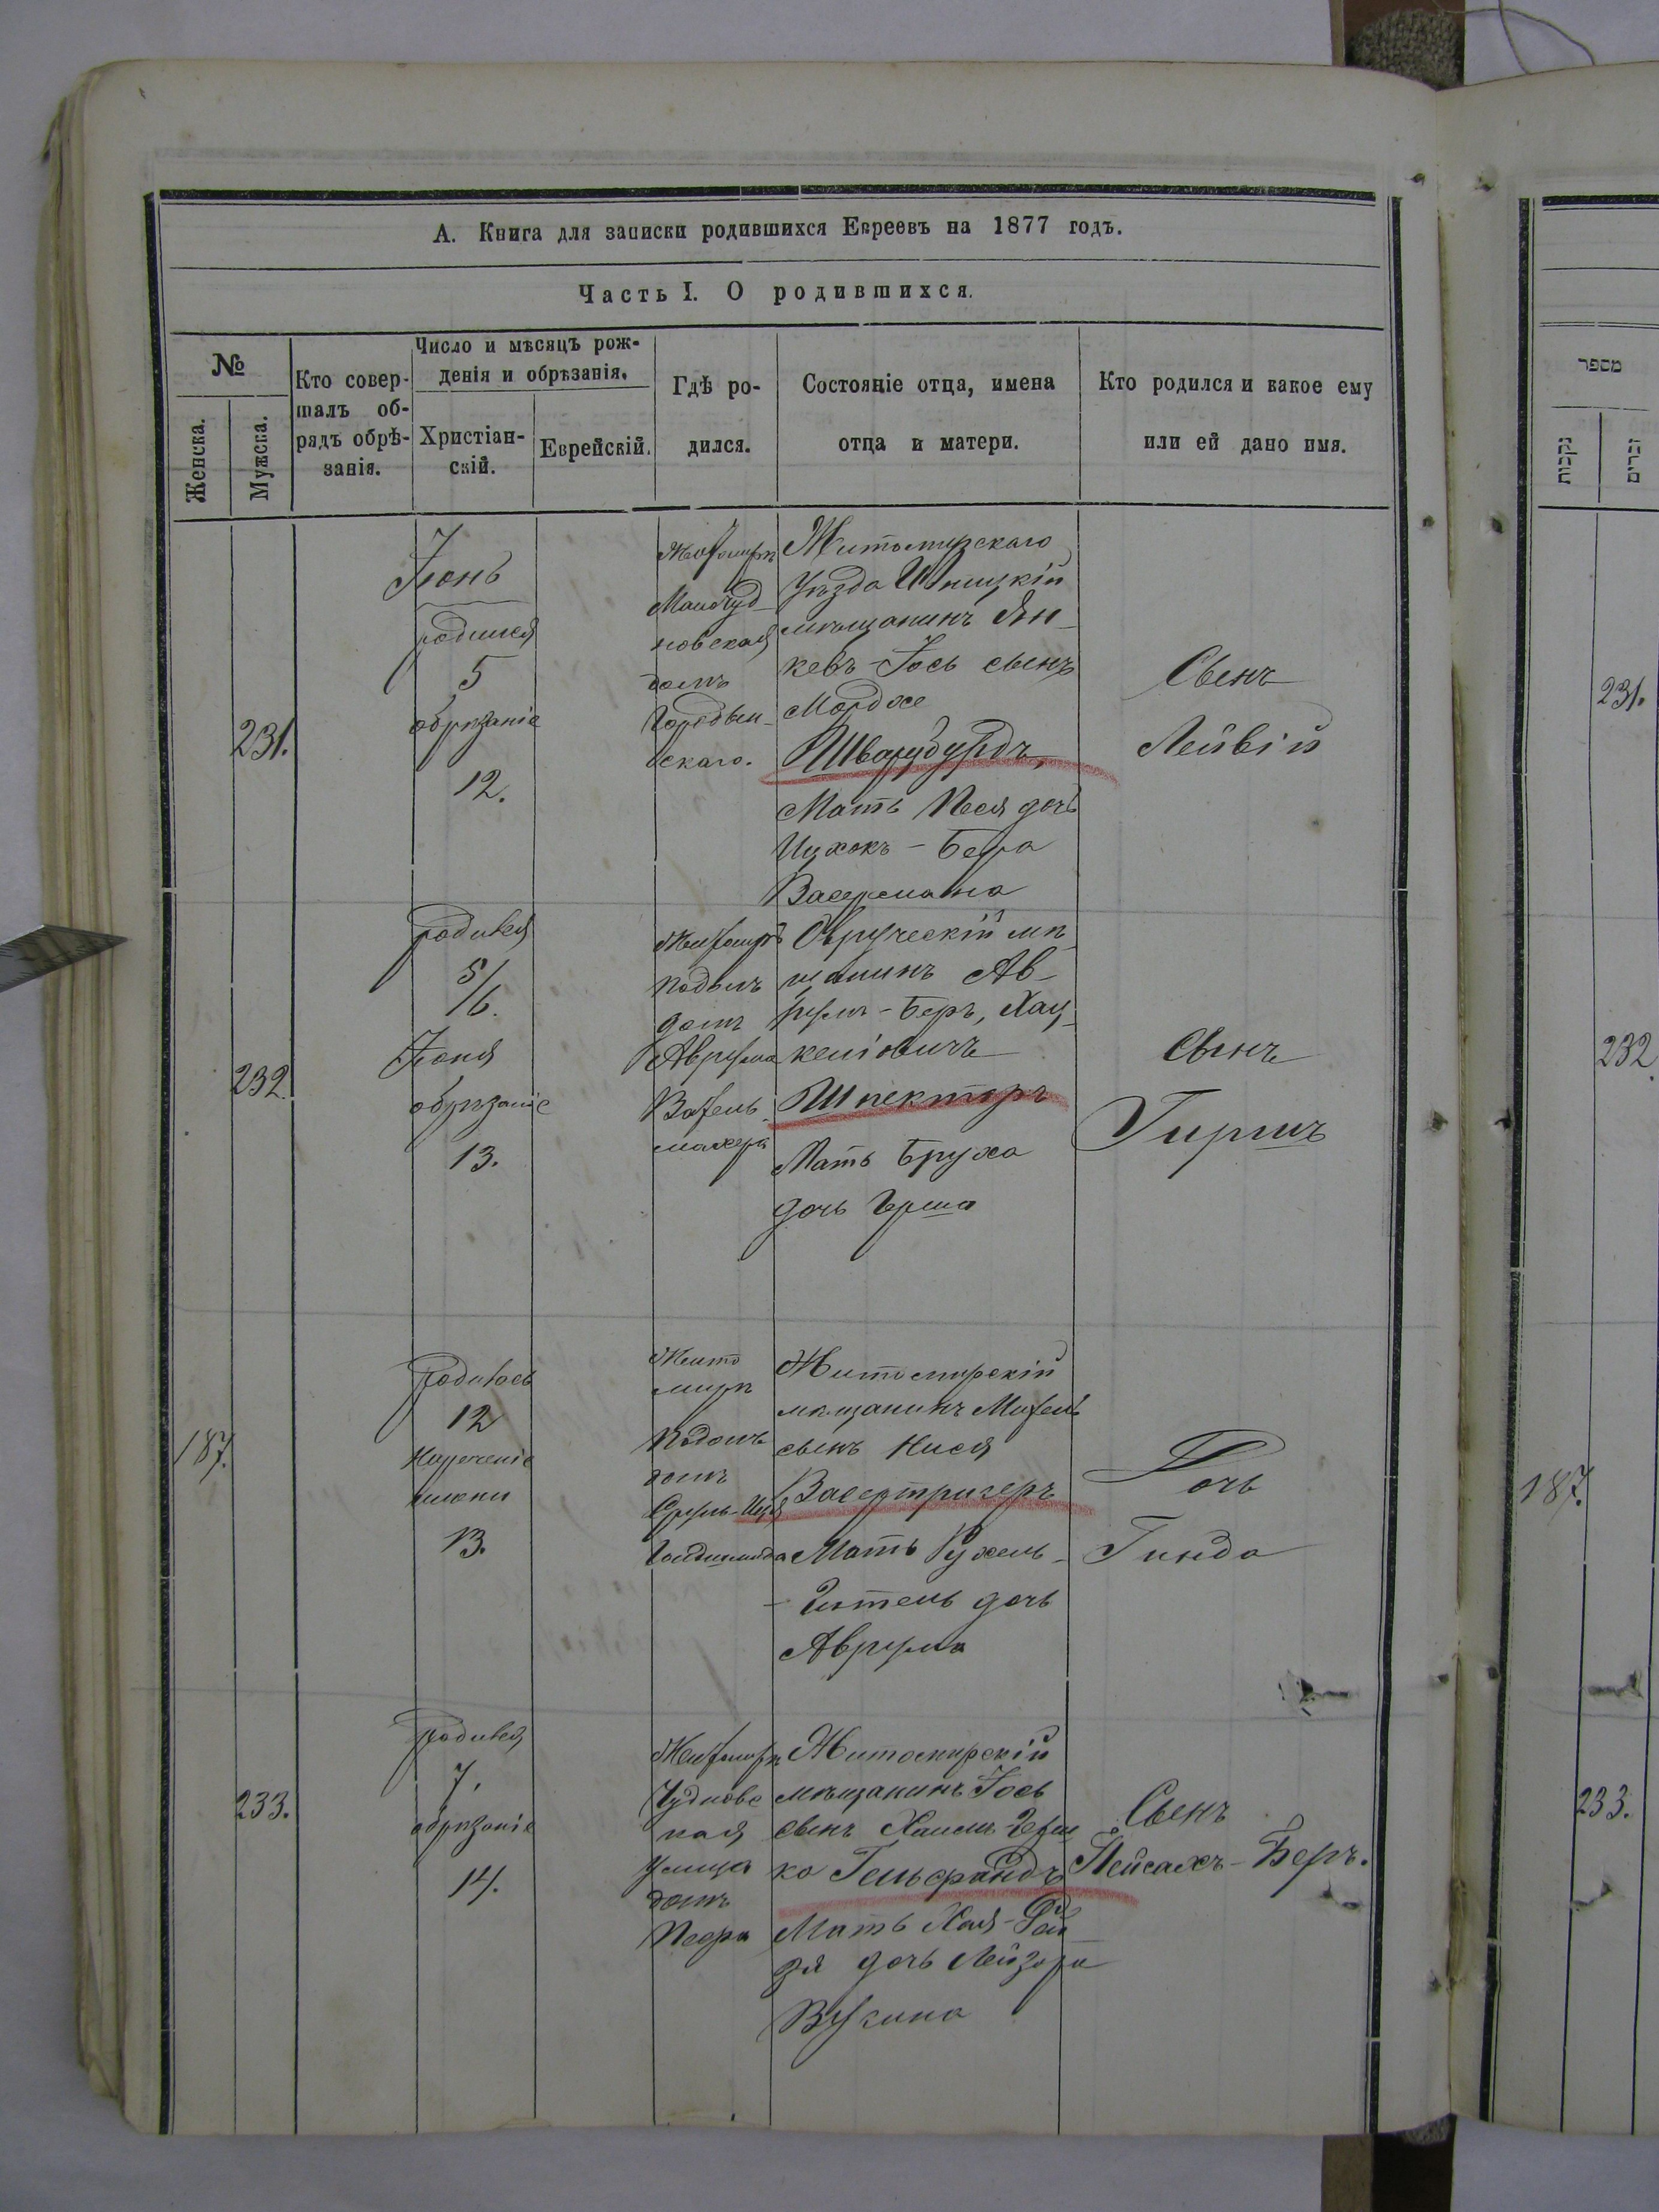 А. Книга для записки родившихся Евреевъ на 1877 годъ.
Часть I. О родившихся.
№
Женска.
Мужска.
Кто совер-
шалъ об-
рядъ обрѣ-
занія.
Число и мѣсяцъ рож-
денія и обрѣзанія.
Христіан-
скій.
Еврейскій.
Гдѣ ро-
дился.
Состояніе отца, имена
отца и матери.
Кто родился и какое ему
или ей дано имя.
231.
Іюнь
родился
5
обрѣзаніе
12.
Житомиръ
новская
домъ
скаго.
Житомирскаго
Уѣзда
мѣщанинъ Ян-
кевъ-Іось сынъ
Мордхе
Шварцбурдъ,
Мать Песя дочь
Ицхокъ-Бера
Васермана
Сынъ
Лейвій
232.
родився
5/6.
Іюня
обрѣзаніе
13.
Житомиръ
Подолъ
домъ
Аврума
Ватель-
махера
Овручскій мѣ-
щанинъ Ав-
румъ-Беръ, Хац-
келіовичъ
Шпекторъ
Мать Бруха
дочь Герша
Сынъ
Гиршъ
187.
Родилась
12
Нареченіе
имени
13.
Жито
миръ
Подолъ
домъ
Срулъ-Иця
Житомирскій
мѣщанинъ
сынъ Нися
Васертригеръ
Мать Рухель-
-Гитель дочь
Аврума
Дочь
Гинда
233.
родився
7.
обрѣзаніе
14.
Житомиръ
Чудновс
кая
улица
домъ
Житомирскій
мѣщанинъ Іось
сынъ Хаимъ-Герш
ко Гельфандъ
Мать Хая-Рей-
зя дочь Лейзора
Сынъ
Пейсахъ-Беръ.
מספר
נקבות
זכרים
231.
232.
187.
233.